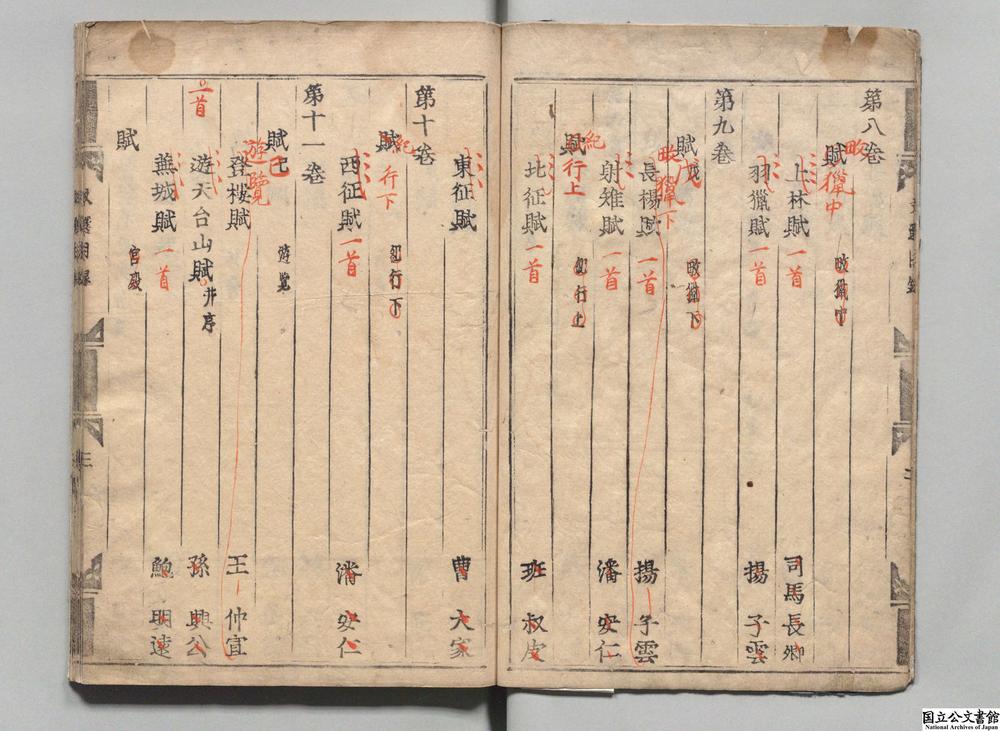 第八卷
賦 畋獵中
畋獵中
上林賦 一首 司馬長卿
羽獵賦 一首 揚子雲
第九卷
賦戊 畋獵下
畋獵下
長楊賦 一首 揚子雲
射雉賦 一首 潘安仁
賦 紀行上
紀行上
北征賦 一首 班叔皮
東征賦 曹大家
第十卷
賦 紀行下
紀行下
西征賦 一首 潘安仁
第十一卷
賦己 遊覽
遊覽
登樓賦 王仲宣
遊天台山賦 并序 孫興公
一首
蕪城賦 一首 鮑明遠
賦
宮殿
三
国立公文書館
National Archives of Japan